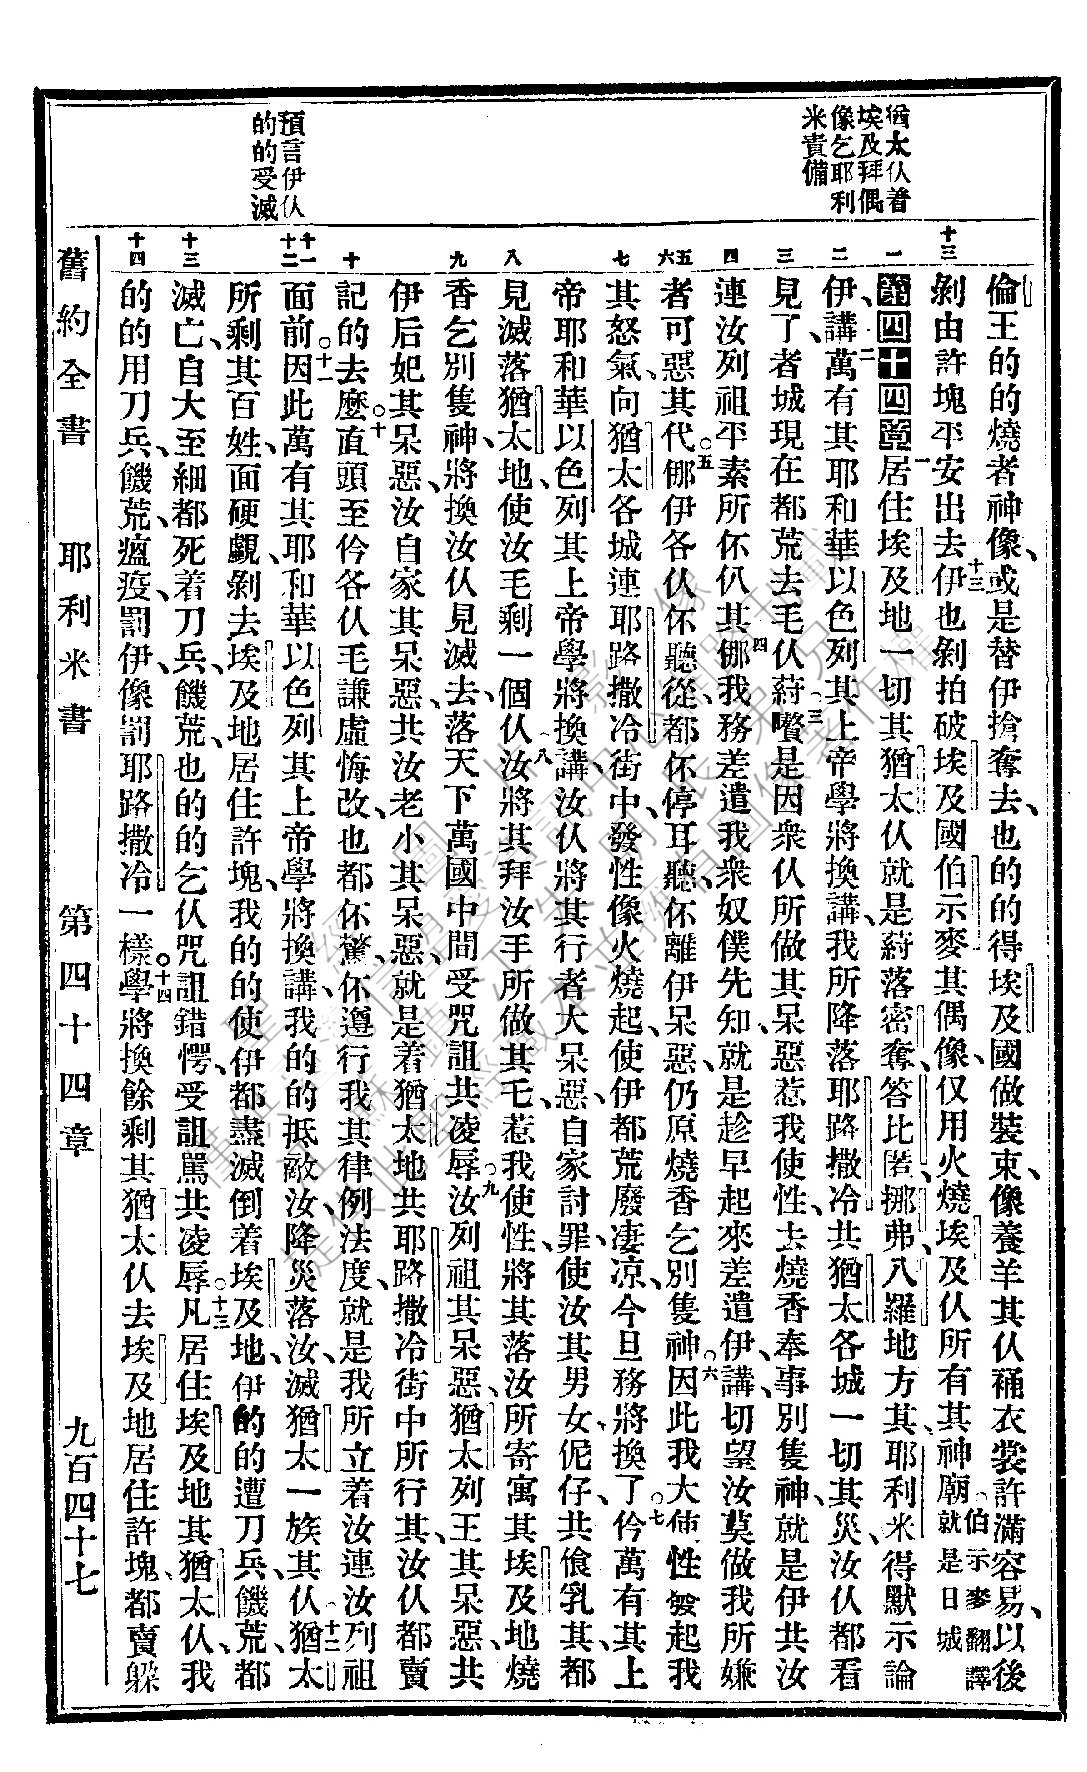 猶太仫著
埃及拜偶
像乞耶利
米責備
預言伊仫
的的受滅
十三
一
二
三
四
五
六
七
八
九
十
十一
十二
十三
十四
倫王的的燒者神像、或是替伊搶奪去、也的的得埃及國做裝束、像養羊其仫䘼衣裳許滿容易、以後
剝由許塊平安出去、十三伊也剝拍破埃及國伯示麥其偶像、仅用火燒埃及仫所有其神廟。伯示麥翻譯就是日城
第四十四章一居住埃及地一切其猶太仫就是蒞落密奪、答比匿、挪弗、八羅地方其、耶利米得默示論
伊講、二萬有其耶和華以色列其上帝學將換講、我所降落耶路撒冷、共猶太各城一切其災、汝仫都看
見了、者城現在都荒去、毛仫蒞嚽、三是因衆仫所做其呆惡、惹我使性、去燒香奉事別隻神、就是伊共汝
連汝列祖平素所伓仈其、四挪我務差遣我衆奴僕先知、就是趁早起來差遣伊講、切望汝莫做我所嫌
者可惡其代。五挪伊各仫伓聽從、都伓停耳聽、伓離伊呆惡、仍原燒香乞別隻神。六因此我大怖性發起我
其怒氣、向猶太各城連耶路撒冷街中、發性像火燒起、使伊都荒廢凄凉、今旦務將換了。七仱萬有其上
帝耶和華、以色列其上帝學將換講、汝仫將其行者大呆惡、自家討罪、使汝其男女、伲仔、共飧乳其、都
見滅落猶太地、使汝毛剩一個仫、八汝將其拜汝手所做其乇、惹我使性、將其落汝所寄寓其埃及地燒
香乞別隻神、將換汝仫見滅去、落天下萬國中間受咒詛共凌辱。九汝列祖其呆惡、猶太列王其呆惡、共
伊后妃其呆惡、汝自家其呆惡、共汝老小其呆惡、就是着猶太地共耶路撒冷街中所行其、汝仫都賣
記的去麽。十直頭至仱各仫毛謙虛悔改、也都伓驚、伓遵行我其律例法度、就是我所立着汝連汝列祖
面前。十一因此萬有其耶和華以色列其上帝學將換講、我的的抵敵汝、降災落汝、滅猶太一族其仫、十二猶太
所剩其百姓、面硬覰剝去埃及地居住許塊、我的的使伊都盡滅倒着埃及地、伊的的遭刀兵、饑荒、都
滅亡、自大至細都死着刀兵、饑荒、也的的乞仫咒詛、錯愕、受詛罵、共凌辱。十三凡居住埃及地其猶太仫、我
的的用刀兵、饑荒、瘟疫、罰伊、像罰耶路撒冷一樣。十四學將換餘剩其猶太仫去埃及地居住許塊、都賣躲
舊約全書　耶利米書　第四十四章　九百四十七